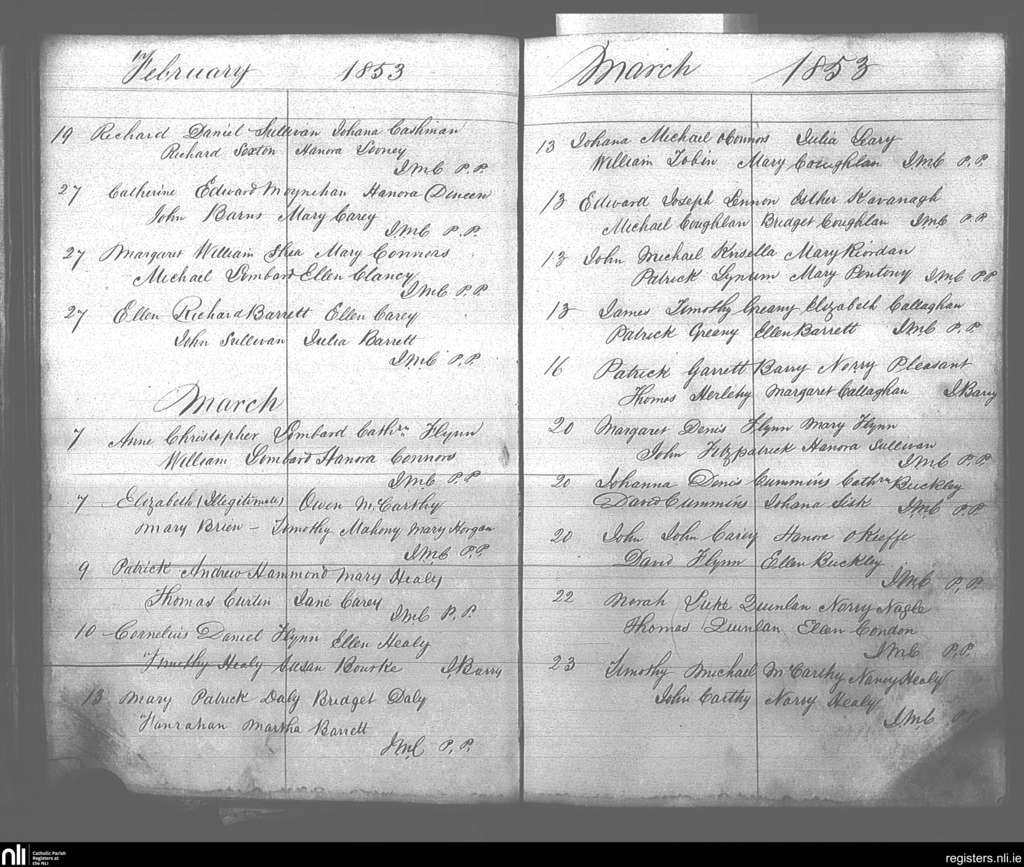 February 1853
19 Richard Daniel Sullivan Johana Cashman
Richard Sexton Hanora Looney
J.McC P.P.
27 Catherine Edward Moynehan Hanora Dineen
John Barns Mary Carey
J.McC P.P.
27 Margaret William Shea Mary Connors
Michael Lombard Ellen Clancy
J.McC P.P.
27 Ellen Richard Barrett Ellen Carey
John Sullivan Julia Barrett
J.McC P.P.
March
7 Anne Christopher Lombard Cathrn Flynn
William Lombard Hanora Connors
J.McC P.P.
7 Elizabeth (Illegitimate) Owen McCarthy
Mary Brien - Timothy Mahony Mary Horgan
J.McC P.P.
9 Patrick Andrew Hammond Mary Healy
Thomas Curtin Jane Carey J.McC P.P.
10 Cornelius Daniel Flynn Ellen Healy
Timothy Healy Susan Bourke J.Barry
13 Mary Patrick Daly Bridget Daly
Hanrahan Martha Barrett
J.McC P.P.
March 1853
13 Johana Michael O'Connos Julia Leary
William Tobin Mary Coughlan J.McC P.P.
13 Edward Joseph Lennon Esther Kavanagh
Michael Coughlan Bridget Coughlan J.McC P.P.
13 John Michael Kinsella Mary Riordan
Patrick Mary Pentony J.McC P.P.
13 James Timothy Greany Elizabeth Callaghan
Patrick Greany Ellen Barrett J.McC P.P.
16 Patrick Garrett Barry Norry Pleasant
Thomas Herlehy Margaret Callaghan J.Barry
20 Margaret Denis Flynn Mary Flynn
John Fitzpatrick Hanora Sullivan
J.McC P.P.
20 Johanna Denis Cummins Cathrn Buckley
David Cummins Johana Sisk J.McC P.P.
20 John John Carey Hanora OKieffe
David Flynn Ellen Buckley
J.McC P.P.
22 Norah Luke Quinlan Norry Nagle
Thomas Quinlan Ellen Condon
J.McC P.P.
23 Timothy Michael McCarthy Nancy Healy
John Carthy Norry Healy
J.McC P.P.
nli Catholic Parish
Registers at
the NLI
registers.nli.ie